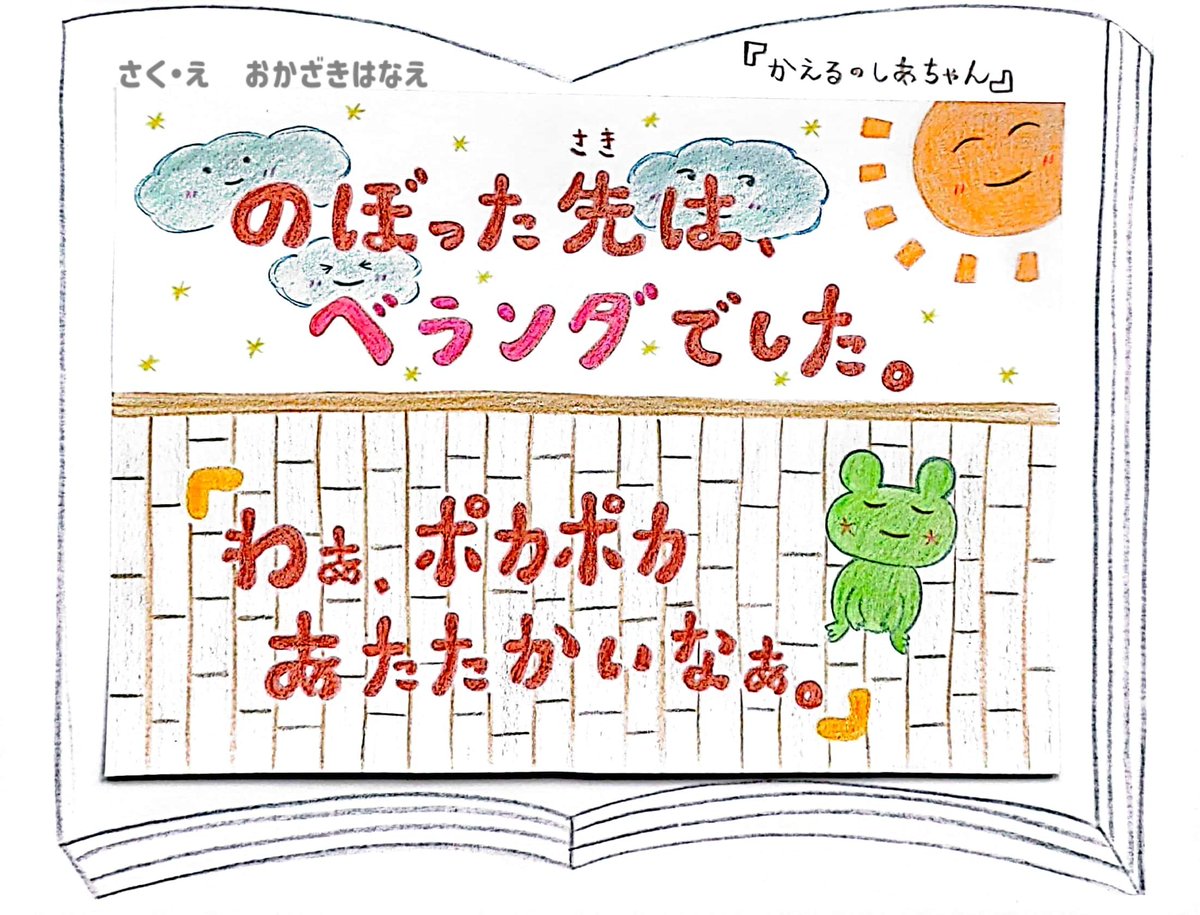 さく・え　おかざきはなえ
『かえるのしあちゃん』
さき
のぼった先は、
ベランダでした。
「わぁ、ポカポカ
あたたかいなぁ。」